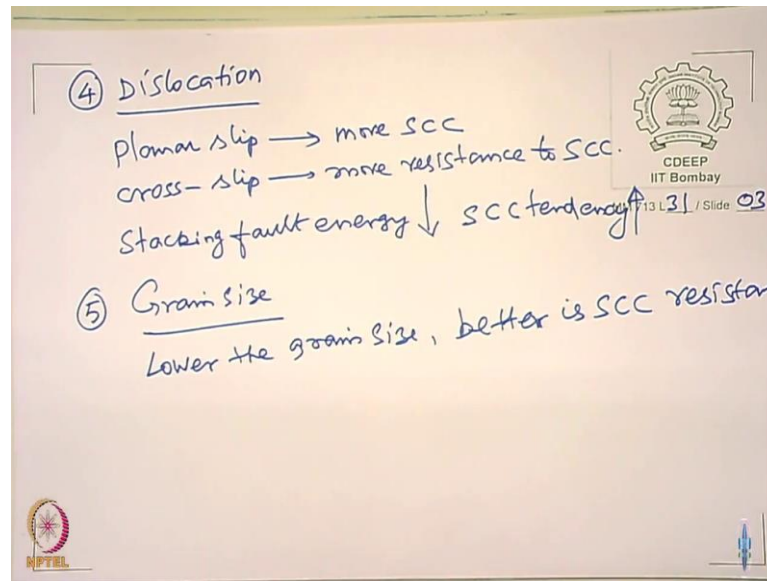 ④ Dislocation
Planar slip → more SCC
cross-slip → more resistance to SCC.
Stacking fault energy ↓ SCC tendency ↑
⑤ Grain size
Lower the grain size, better is SCC resistan
CDEEP
IIT Bombay
713 L 31 / Slide 03
NPTEL